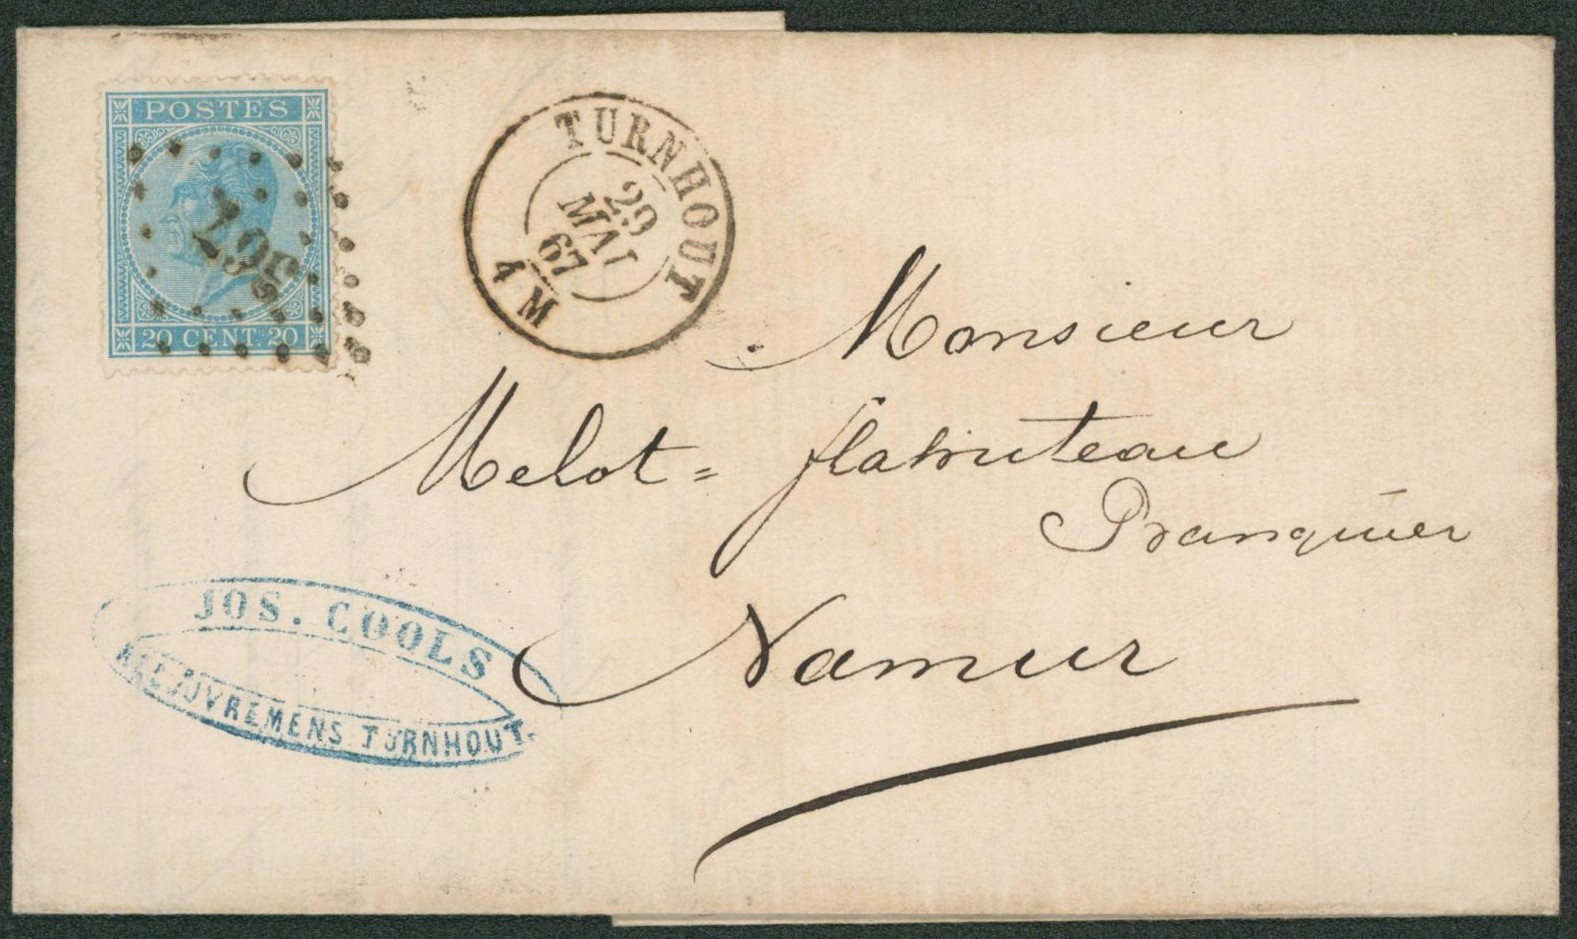 POSTES
367
20 CENT. 20
TURNHOUT
29
MAI
67
4 M
Monsieur
Melot=
Banquier
Namur
JOS. COOLS
RECOUVREMENS TURNHOUT.